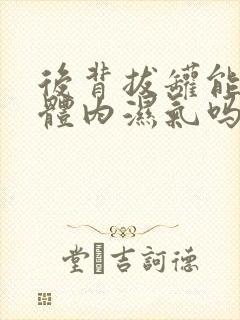 後背拔罐能
體內濕氣嗎
堂吉訶德